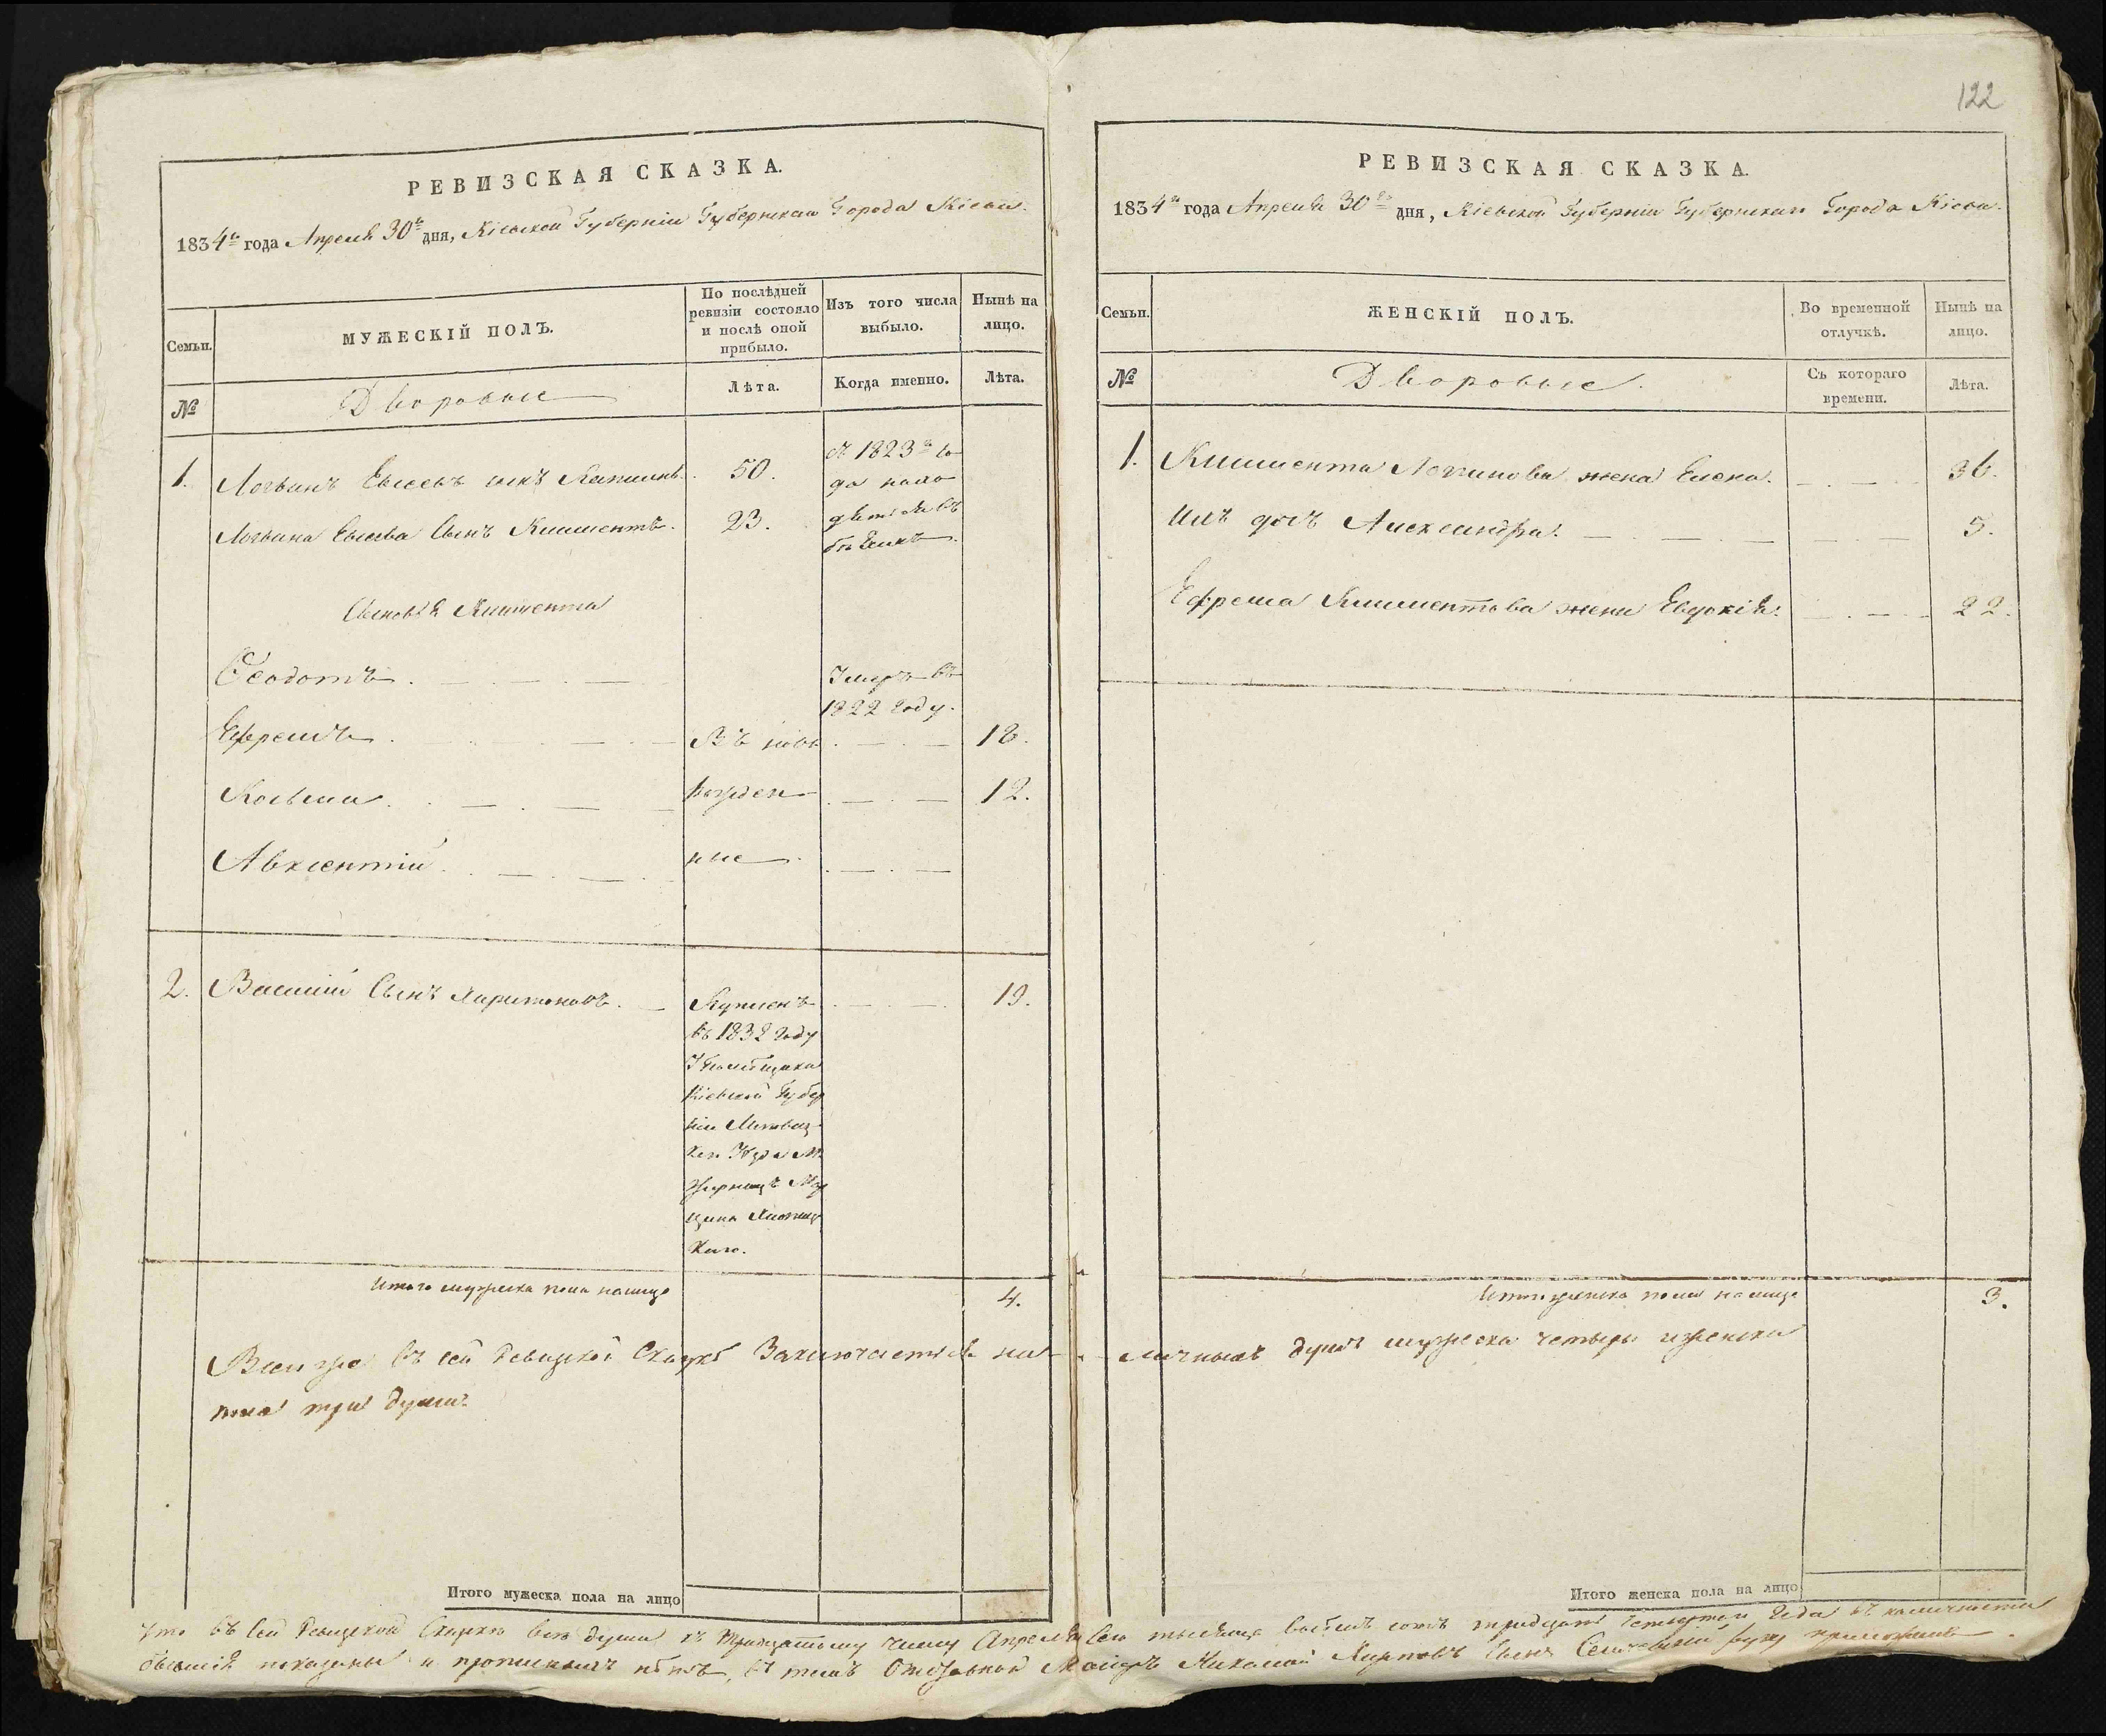 РЕВИЗСКАЯ СКАЗКА.
1834го года Апреля 30го дня, Кіевской Губерніи Губернскаго Города Кіева.
Семьи.
МУЖЕСКІЙ ПОЛЪ.
По послѣдней ревизіи состояло и послѣ оной прибыло.
Изъ того числа выбыло.
Нынѣ на лицо.
№
Дворовые
Лѣта.
Когда именно.
Лѣта.
1. Логвинъ Евсеевъ сынъ 50.
съ 1823го го
да нахо
дятся въ
бѣгахъ
Логвина Евсеева сынъ Климентъ. 23.
Сыновья Климента
Ѳеодотъ. Умеръ въ
1822 году.
Ефремъ. Въ новь 18.
Козьма. рожден 12.
Авксентій ные
2. Василий сынъ Харитоновъ. Купленъ 19.
въ 1832 году
У помѣщика
Кіевской Губер
ніи Липовец
каго Уѣзда
каго.
Итого мужеска пола налицо 4.
Всего же въ сей Ревизской Сказкѣ Заключается на
пола три души.
Итого мужеска пола на лицо
122
РЕВИЗСКАЯ СКАЗКА.
1834го года Апреля 30го дня, Кіевской Губерніи Губернскаго Города Кіева.
Семьи.
ЖЕНСКІЙ ПОЛЪ.
Во временной отлучкѣ.
Нынѣ на лицо.
№
Дворовые.
Съ котораго времени.
Лѣта.
1. Климента Логвинова жена Елена. 36.
Ихъ дочь Александра. 5.
Ефрема Климентова жена Евдокія. 22.
Итого женска пола налицо 3.
личныхъ душъ мужеска четыре и женска
Итого женска пола на лицо
Что въ сей Ревизской Сказкѣ все души къ тридцатому числу Апреля сего тысяча восемь сотъ тридцать четвертаго года въ наличности
бывшія показаны и прописныхъ нѣтъ, въ томъ Отставной Маіоръ Николай сынъ руку приложилъ.